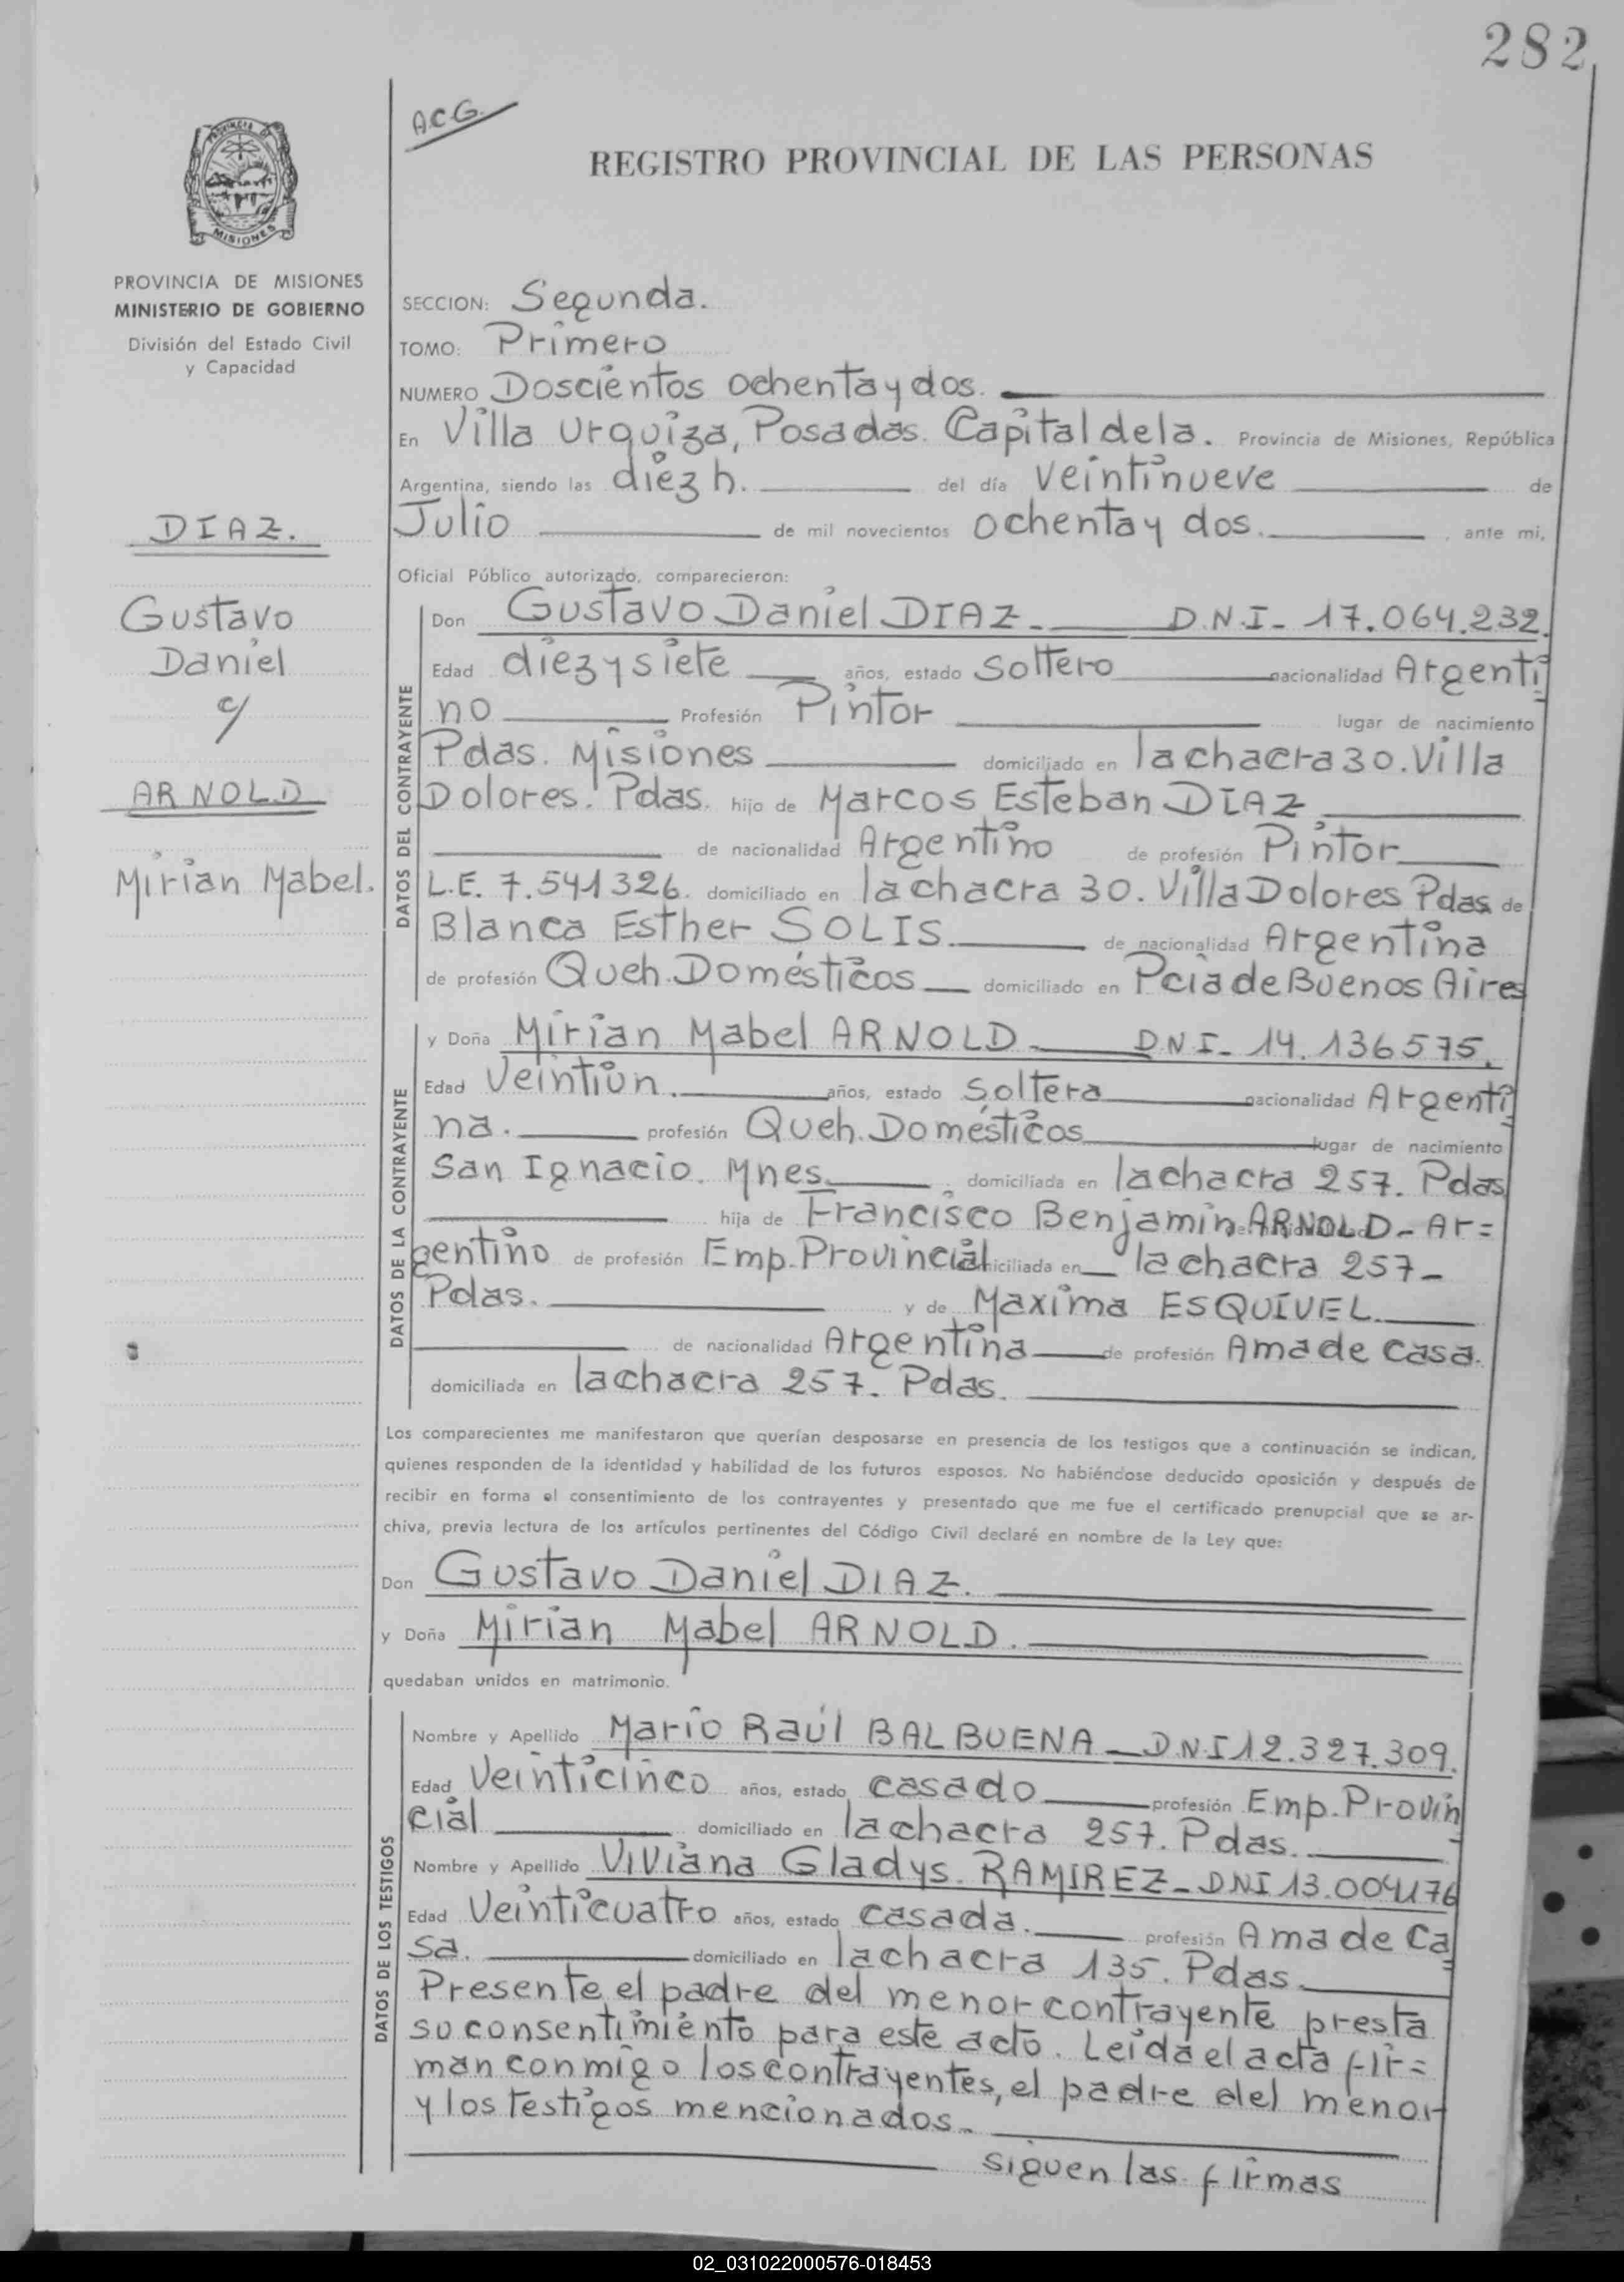 282
A.C.G.
REGISTRO PROVINCIAL DE LAS PERSONAS
PROVINCIA DE MISIONES
MINISTERIO DE GOBIERNO
División del Estado Civil
y Capacidad
DIAZ.
Gustavo
Daniel
c/
ARNOLD
Mirian Mabel.
SECCION: Segunda.
TOMO: Primero
NUMERO Doscientos ochenta y dos.
En Villa Urquiza, Posadas. Capital de la. Provincia de Misiones, República
Argentina, siendo las diez h. del día veintinueve de
Julio de mil novecientos ochenta y dos. , ante mi,
Oficial Público autorizado, comparecieron:
DATOS DEL CONTRAYENTE
Don Gustavo Daniel DIAZ. D.N.I. 17.064.232.
Edad diez y siete años, estado soltero nacionalidad Argenti
no Profesión Pintor lugar de nacimiento
Pdas. Misiones domiciliado en la chacra 30. Villa
Dolores. Pdas. hijo de Marcos Esteban DIAZ
de nacionalidad Argentino de profesión Pintor
L.E. 7.541326. domiciliado en la chacra 30. Villa Dolores Pdas de
Blanca Esther SOLIS. de nacionalidad Argentina
de profesión Queh. Domésticos domiciliado en Pcia de Buenos Aires
DATOS DE LA CONTRAYENTE
y Doña Mirian Mabel ARNOLD. DNI. 14.136575.
Edad Veintiun. años, estado soltera nacionalidad Argenti
na. profesión Queh. Domésticos lugar de nacimiento
San Ignacio. Mnes. domiciliada en la chacra 257. Pdas
hija de Francisco Benjamin ARNOLD - Ar=
gentino de profesión Emp. Provincial miciliada en la chacra 257-
Pdas. y de Maxima ESQUIVEL.
de nacionalidad Argentina de profesión Ama de casa.
domiciliada en la chacra 257. Pdas.
Los comparecientes me manifestaron que querían desposarse en presencia de los testigos que a continuación se indican,
quienes responden de la identidad y habilidad de los futuros esposos. No habiéndose deducido oposición y después de
recibir en forma el consentimiento de los contrayentes y presentado que me fue el certificado prenupcial que se ar-
chiva, previa lectura de los artículos pertinentes del Código Civil declaré en nombre de la Ley que:
Don Gustavo Daniel DIAZ.
y Doña Mirian Mabel ARNOLD.
quedaban unidos en matrimonio.
DATOS DE LOS TESTIGOS
Nombre y Apellido Mario Raúl BALBUENA - DNI 12.327.309.
Edad Veinticinco años, estado casado profesión Emp. Provin
cial domiciliado en la chacra 257. Pdas.
Nombre y Apellido Viviana Gladys. RAMIREZ - DNI 13.004176
Edad Veinticuatro años, estado casada. profesión Ama de Ca
sa. domiciliado en la chacra 135. Pdas.
Presente el padre del menor contrayente presta
su consentimiento para este acto. Leida el acta fir=
man conmigo los contrayentes, el padre del menor
y los testigos mencionados.
siguen las firmas
02_031022000576-018453